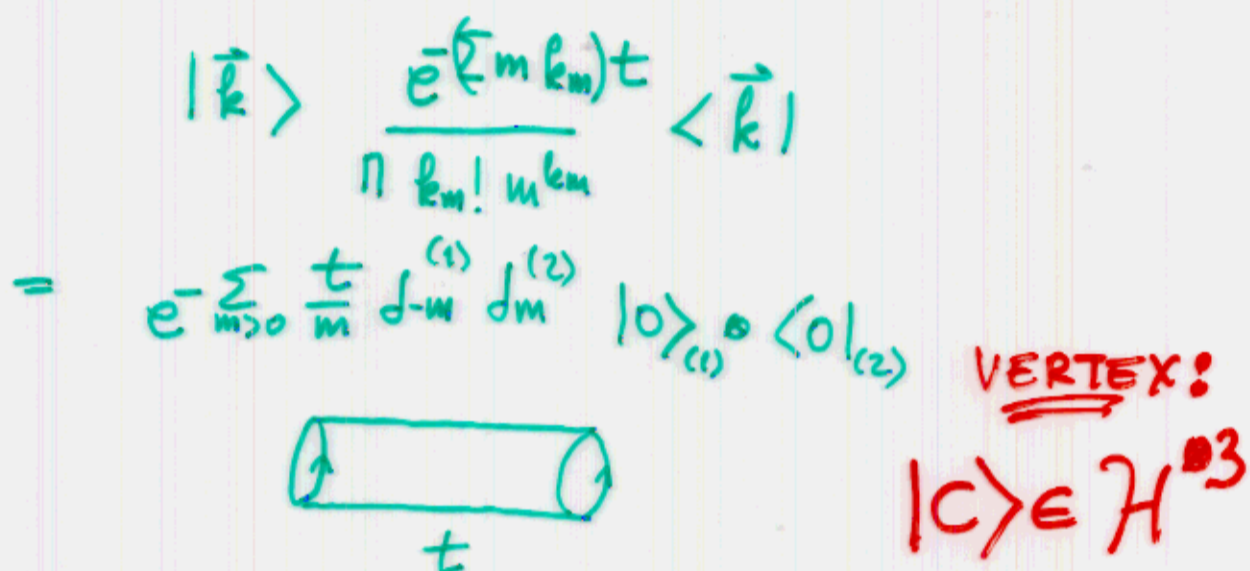 |k⃗⟩ e^{-(Σ m k_m)t} / Π k_m! m^{k_m} ⟨k⃗|
= e^{-Σ_{m>0} t/m α_{-m}^{(1)} α_m^{(2)}} |0⟩_{(1)} ⊗ ⟨0|_{(2)}
VERTEX:
|C⟩ ∈ H^{⊗3}
t